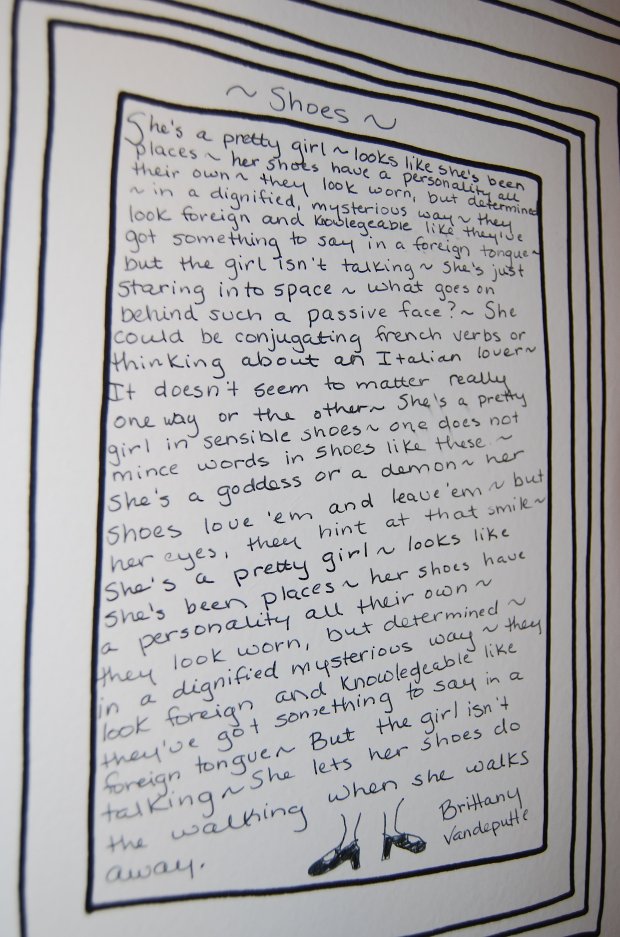 ~ Shoes ~
She's a pretty girl ~ looks like she's been
places ~ her shoes have a personality all
their own ~ they look worn, but determined
~ in a dignified, mysterious way ~ they
look foreign and knowlegeable like they've
got something to say in a foreign tongue ~
but the girl isn't talking ~ She's just
staring into space ~ what goes on
behind such a passive face? ~ She
could be conjugating french verbs or
thinking about an Italian lover ~
It doesn't seem to matter really
one way or the other ~ She's a pretty
girl in sensible shoes ~ one does not
mince words in shoes like these ~
She's a goddess or a demon ~ her
shoes love 'em and leave 'em ~ but
her eyes, they hint at that smile ~
She's a pretty girl ~ looks like
she's been places ~ her shoes have
a personality all their own ~
they look worn, but determined ~
in a dignified mysterious way ~ they
look foreign and knowledgeable like
they've got something to say in a
foreign tongue ~ But the girl isn't
talking ~ She lets her shoes do
the walking when she walks
away.
Brittany
Vandeputte